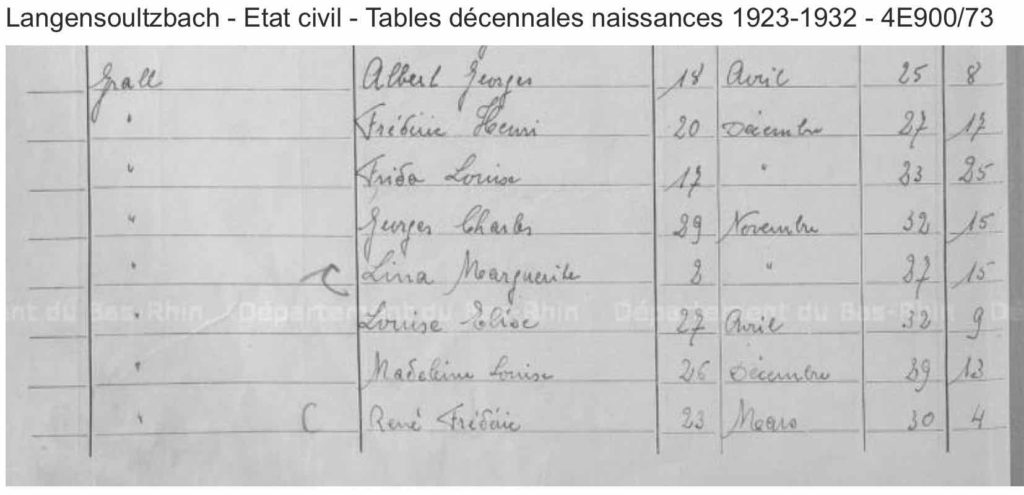 Langensoultzbach - Etat civil - Tables décennales naissances 1923-1932 - 4E900/73
Grall Albert Georges 18 Avril 25 8
" Frédéric Henri 20 Décembre 27 17
" Frida Louise 17 " 23 25
" Georges Charles 29 Novembre 32 15
" Lina Marguerite 2 " 27 15
nt du Bas-Rhin Département du Bas-Rhin Département du Bas-Rhin
" Louise Elise 27 Avril 32 9
" Madeleine Louise 26 Décembre 29 13
" René Frédéric 23 Mars 30 4